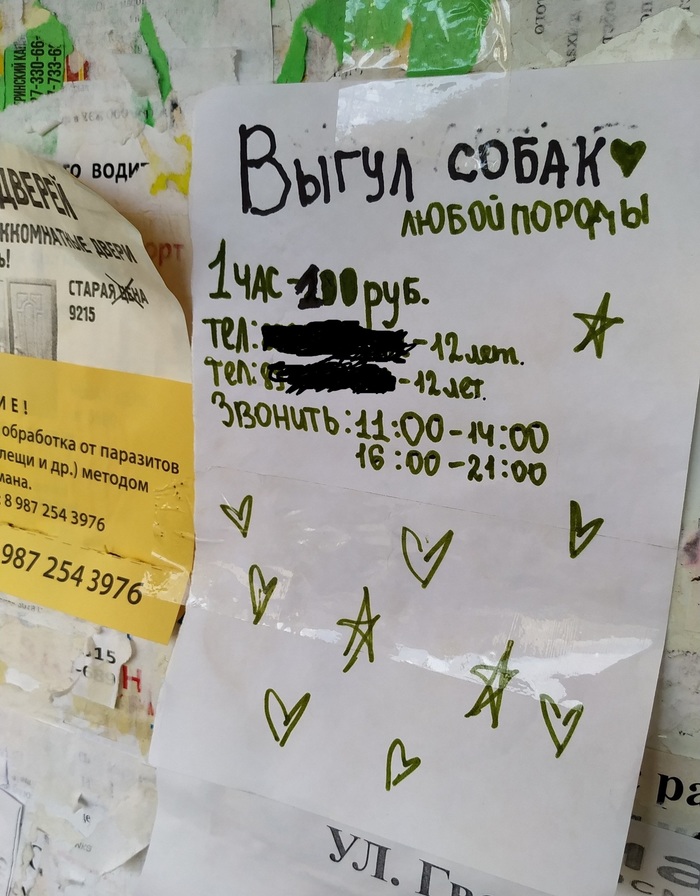 Выгул собак
любой породы
1 час - 100 руб.
тел: - 12 лет.
тел: 8 - 12 лет.
Звонить: 11:00 - 14:00
16:00 - 21:00
УЛ.
ДВЕРЕЙ
ЖКОМНАТНЫЕ ДВЕРИ
Ь!
СТАРАЯ ЦЕНА
9215
ИЕ!
обработка от паразитов
лещи и др.) методом
мана.
: 8 987 254 3976
987 254 3976
о водит
орт
7-330-66-
-733-6
15
Н
ра